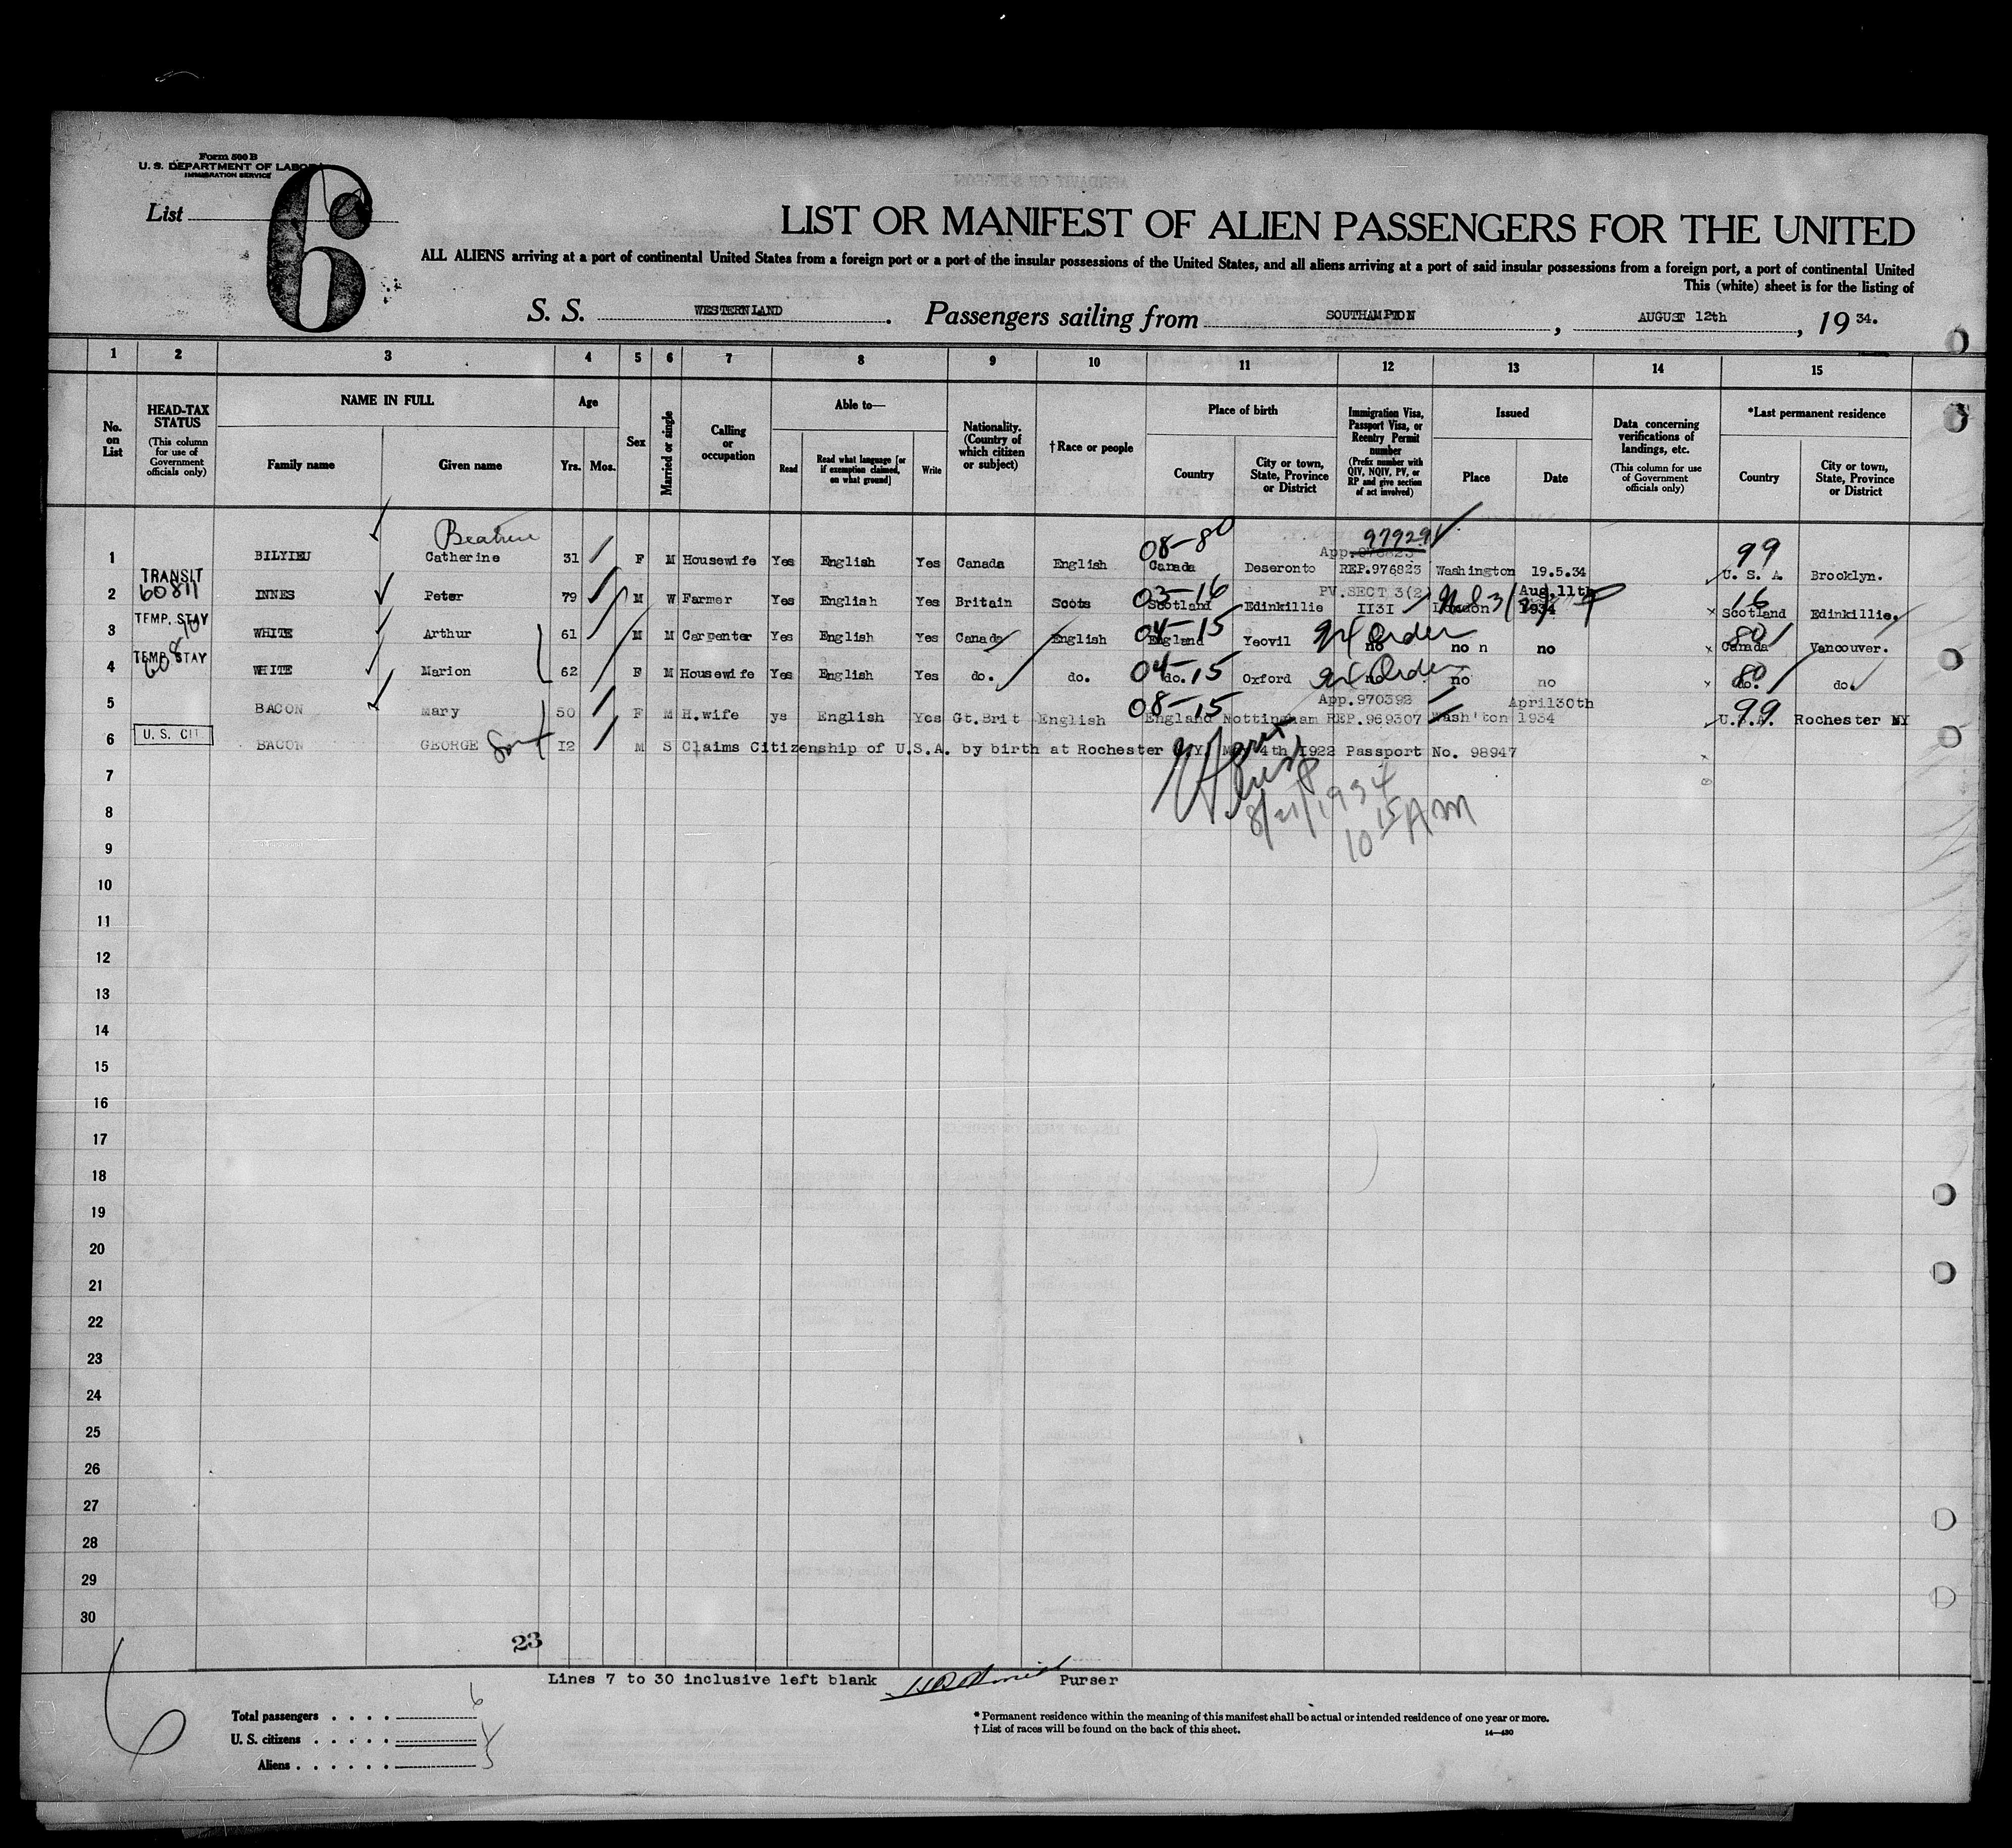 Form 500 B
U. S. DEPARTMENT OF LABOR
IMMIGRATION SERVICE
List
6
LIST OR MANIFEST OF ALIEN PASSENGERS FOR THE UNITED
ALL ALIENS arriving at a port of continental United States from a foreign port or a port of the insular possessions of the United States, and all aliens arriving at a port of said insular possessions from a foreign port, a port of continental United
This (white) sheet is for the listing of
S. S. WESTERNLAND. Passengers sailing from SOUTHAMPTON, AUGUST 12th, 19 34.
1 2 3 4 5 6 7 8 9 10 11 12 13 14 15
No. on List
HEAD-TAX STATUS
(This column for use of Government officials only)
NAME IN FULL
Family name
Given name
Age
Yrs.
Mos.
Sex
Married or single
Calling or occupation
Able to—
Read
Read what language [or if exemption claimed, on what ground]
Write
Nationality. (Country of which citizen or subject)
†Race or people
Place of birth
Country
City or town, State, Province or District
Immigration Visa, Passport Visa, or Reentry Permit number
(Prefix number with QIV, NQIV, PV, or RP and give section of act involved)
Issued
Place
Date
Data concerning verifications of landings, etc.
(This column for use of Government officials only)
*Last permanent residence
Country
City or town, State, Province or District
Beatrice 08-80 97929 99
1 BILYIEU Catherine 31 F M Housewife Yes English Yes Canada English Canada Deseronto App.976823 REP.976823 Washington 19.5.34 U. S. A Brooklyn.
TRANSIT
60811 03-16 16
2 INNES Peter 79 M W Farmer Yes English Yes Britain Scots Scotland Edinkillie PV.SECT 3(2 II3I London Aug.11th 1934 Scotland Edinkillie.
TEMP. STAY 04-15 Order 80
3 WHITE Arthur 61 M M Carpenter Yes English Yes Canada English England Yeovil no no n no Canada Vancouver.
TEMP. STAY 04-15 Order 80
4 WHITE Marion 62 F M Housewife Yes English Yes do. do. do. Oxford no no no do. do.
08-15 99
5 BACON Mary 50 F M H.wife ys English Yes Gt.Brit English England Nottingham App.970392 REP.969307 Wash'ton April30th 1934 U.S.A. Rochester NY
U. S. CIT.
6 BACON GEORGE Son I2 M S Claims Citizenship of U.S.A. by birth at Rochester 4th I922 Passport No. 98947
7
8/21/1934
8
10 15 AM
9
10
11
12
13
14
15
16
17
18
19
20
21
22
23
24
25
26
27
28
29
30
23
Lines 7 to 30 inclusive left blank Purser
6
Total passengers . . . . 6
U. S. citizens . . . . . 1
Aliens . . . . . . 5
* Permanent residence within the meaning of this manifest shall be actual or intended residence of one year or more.
† List of races will be found on the back of this sheet.
14—430